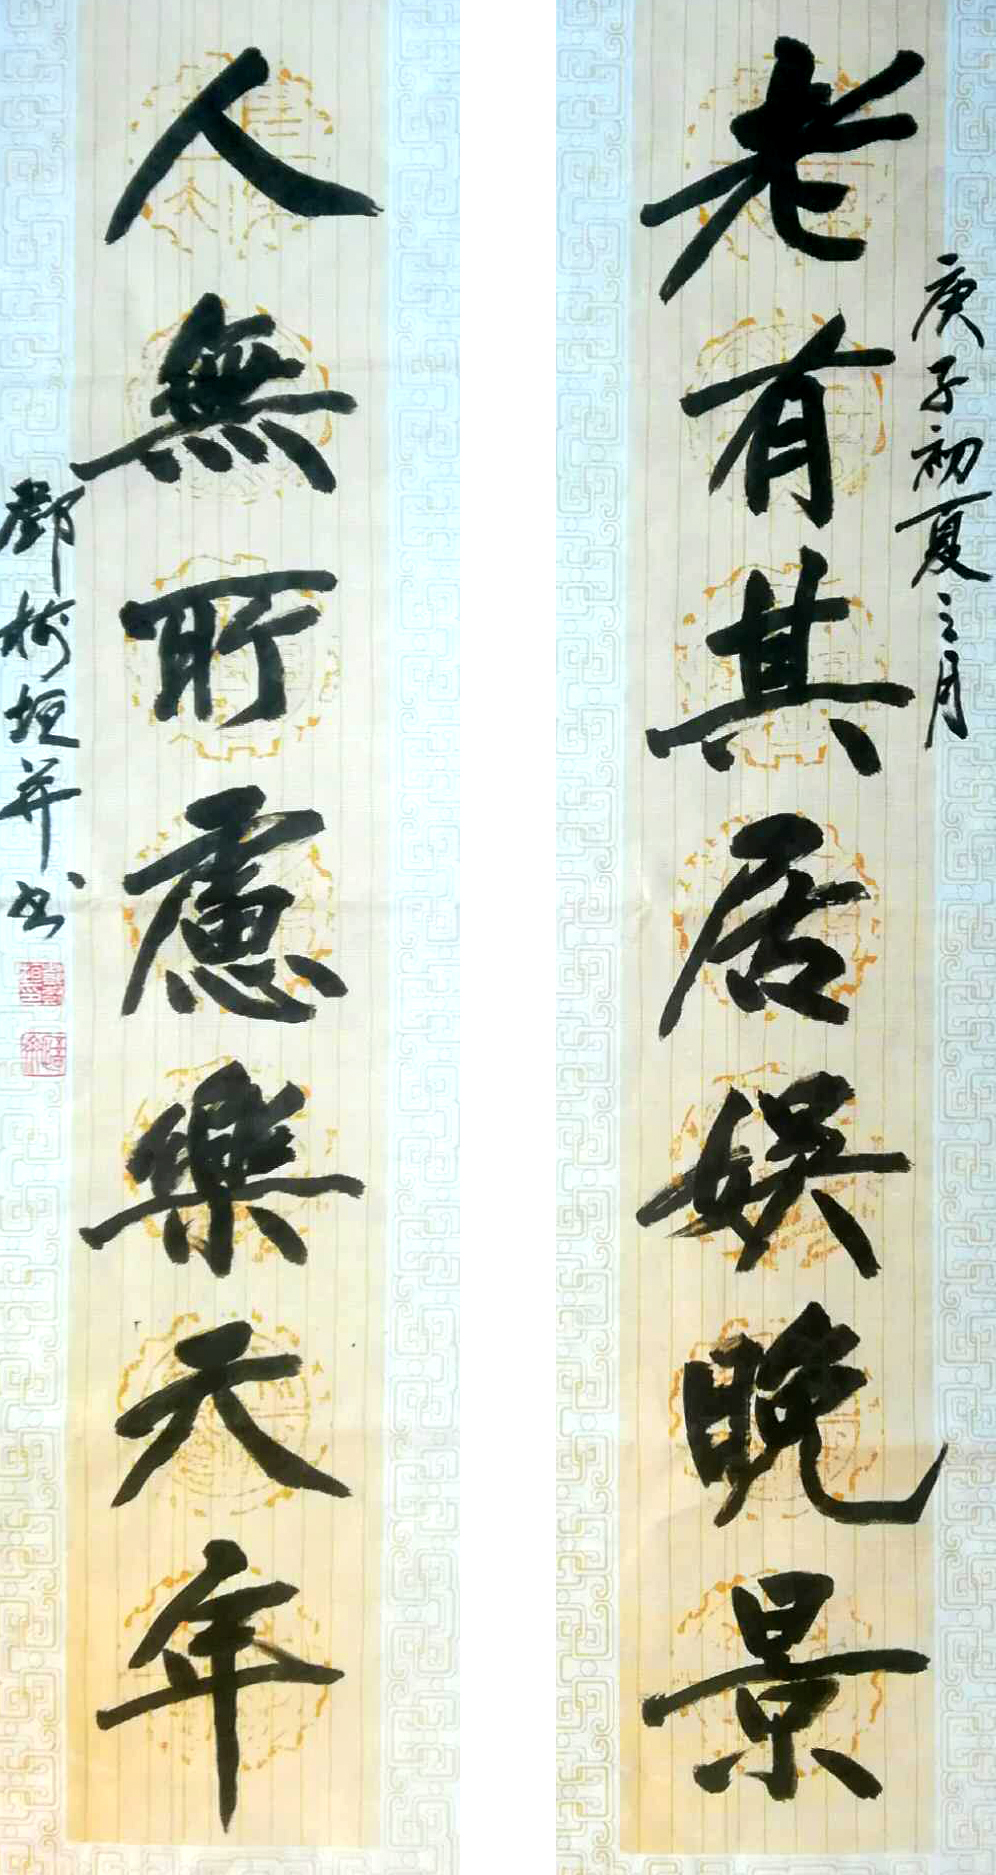 老有其居娱晚景
庚子初夏之月
人無所慮樂天年
鄧樹垣并书